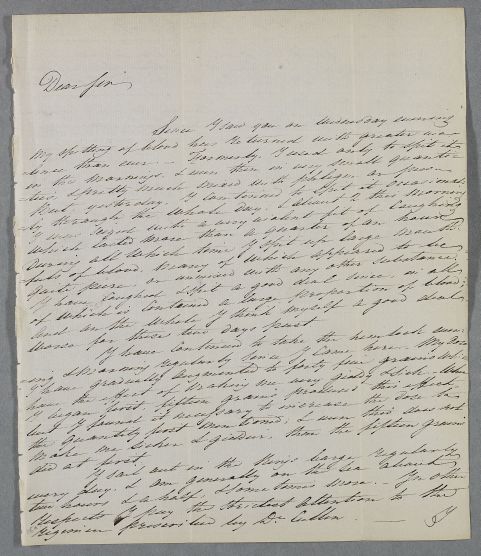 Dear Sir
Since I saw you on Wednesday evening
My spitting of blood has returned with greater vio-
lence than ever. — Formerly, I used only to spit it
in the Mornings, & even then in very small quanti-
ties & pretty much mixed with phlegm or
But yesterday I continued to spit it occasional-
ly through the whole day & about 2 this morning
I was seized with a very violent fit of Coughing
which lasted more than a quarter of an hour,
during all which time I spit up large mouth-
fuls of blood, many of which appeared to be
quite pure, or unmixed with any other substance.
I have Coughed & spit a good deal since, in all
of which is contained a large proportion of blood;
And on the whole I think myself a good deal
worse for these two days past
I have Continued to take the hemlock even-
ing & Morning regularly since I Came here. My Dose
I have gradually augmented to forty five grains which
have the effect of making me very giddy & sick. When
I began first, fifteen grains produced this effect,
but I found it necessary to increase the dose to
the quantity just mentioned, & even this does not
make me sicker & giddier, than the fifteen grains
did at first
I sail out in the King's barge regularly
every day, & am generally on the sea about
two hours & a half, & sometimes more. — In other
respects I pay the strictest attention to the
Regimen prescribed by Dr Cullen. — I